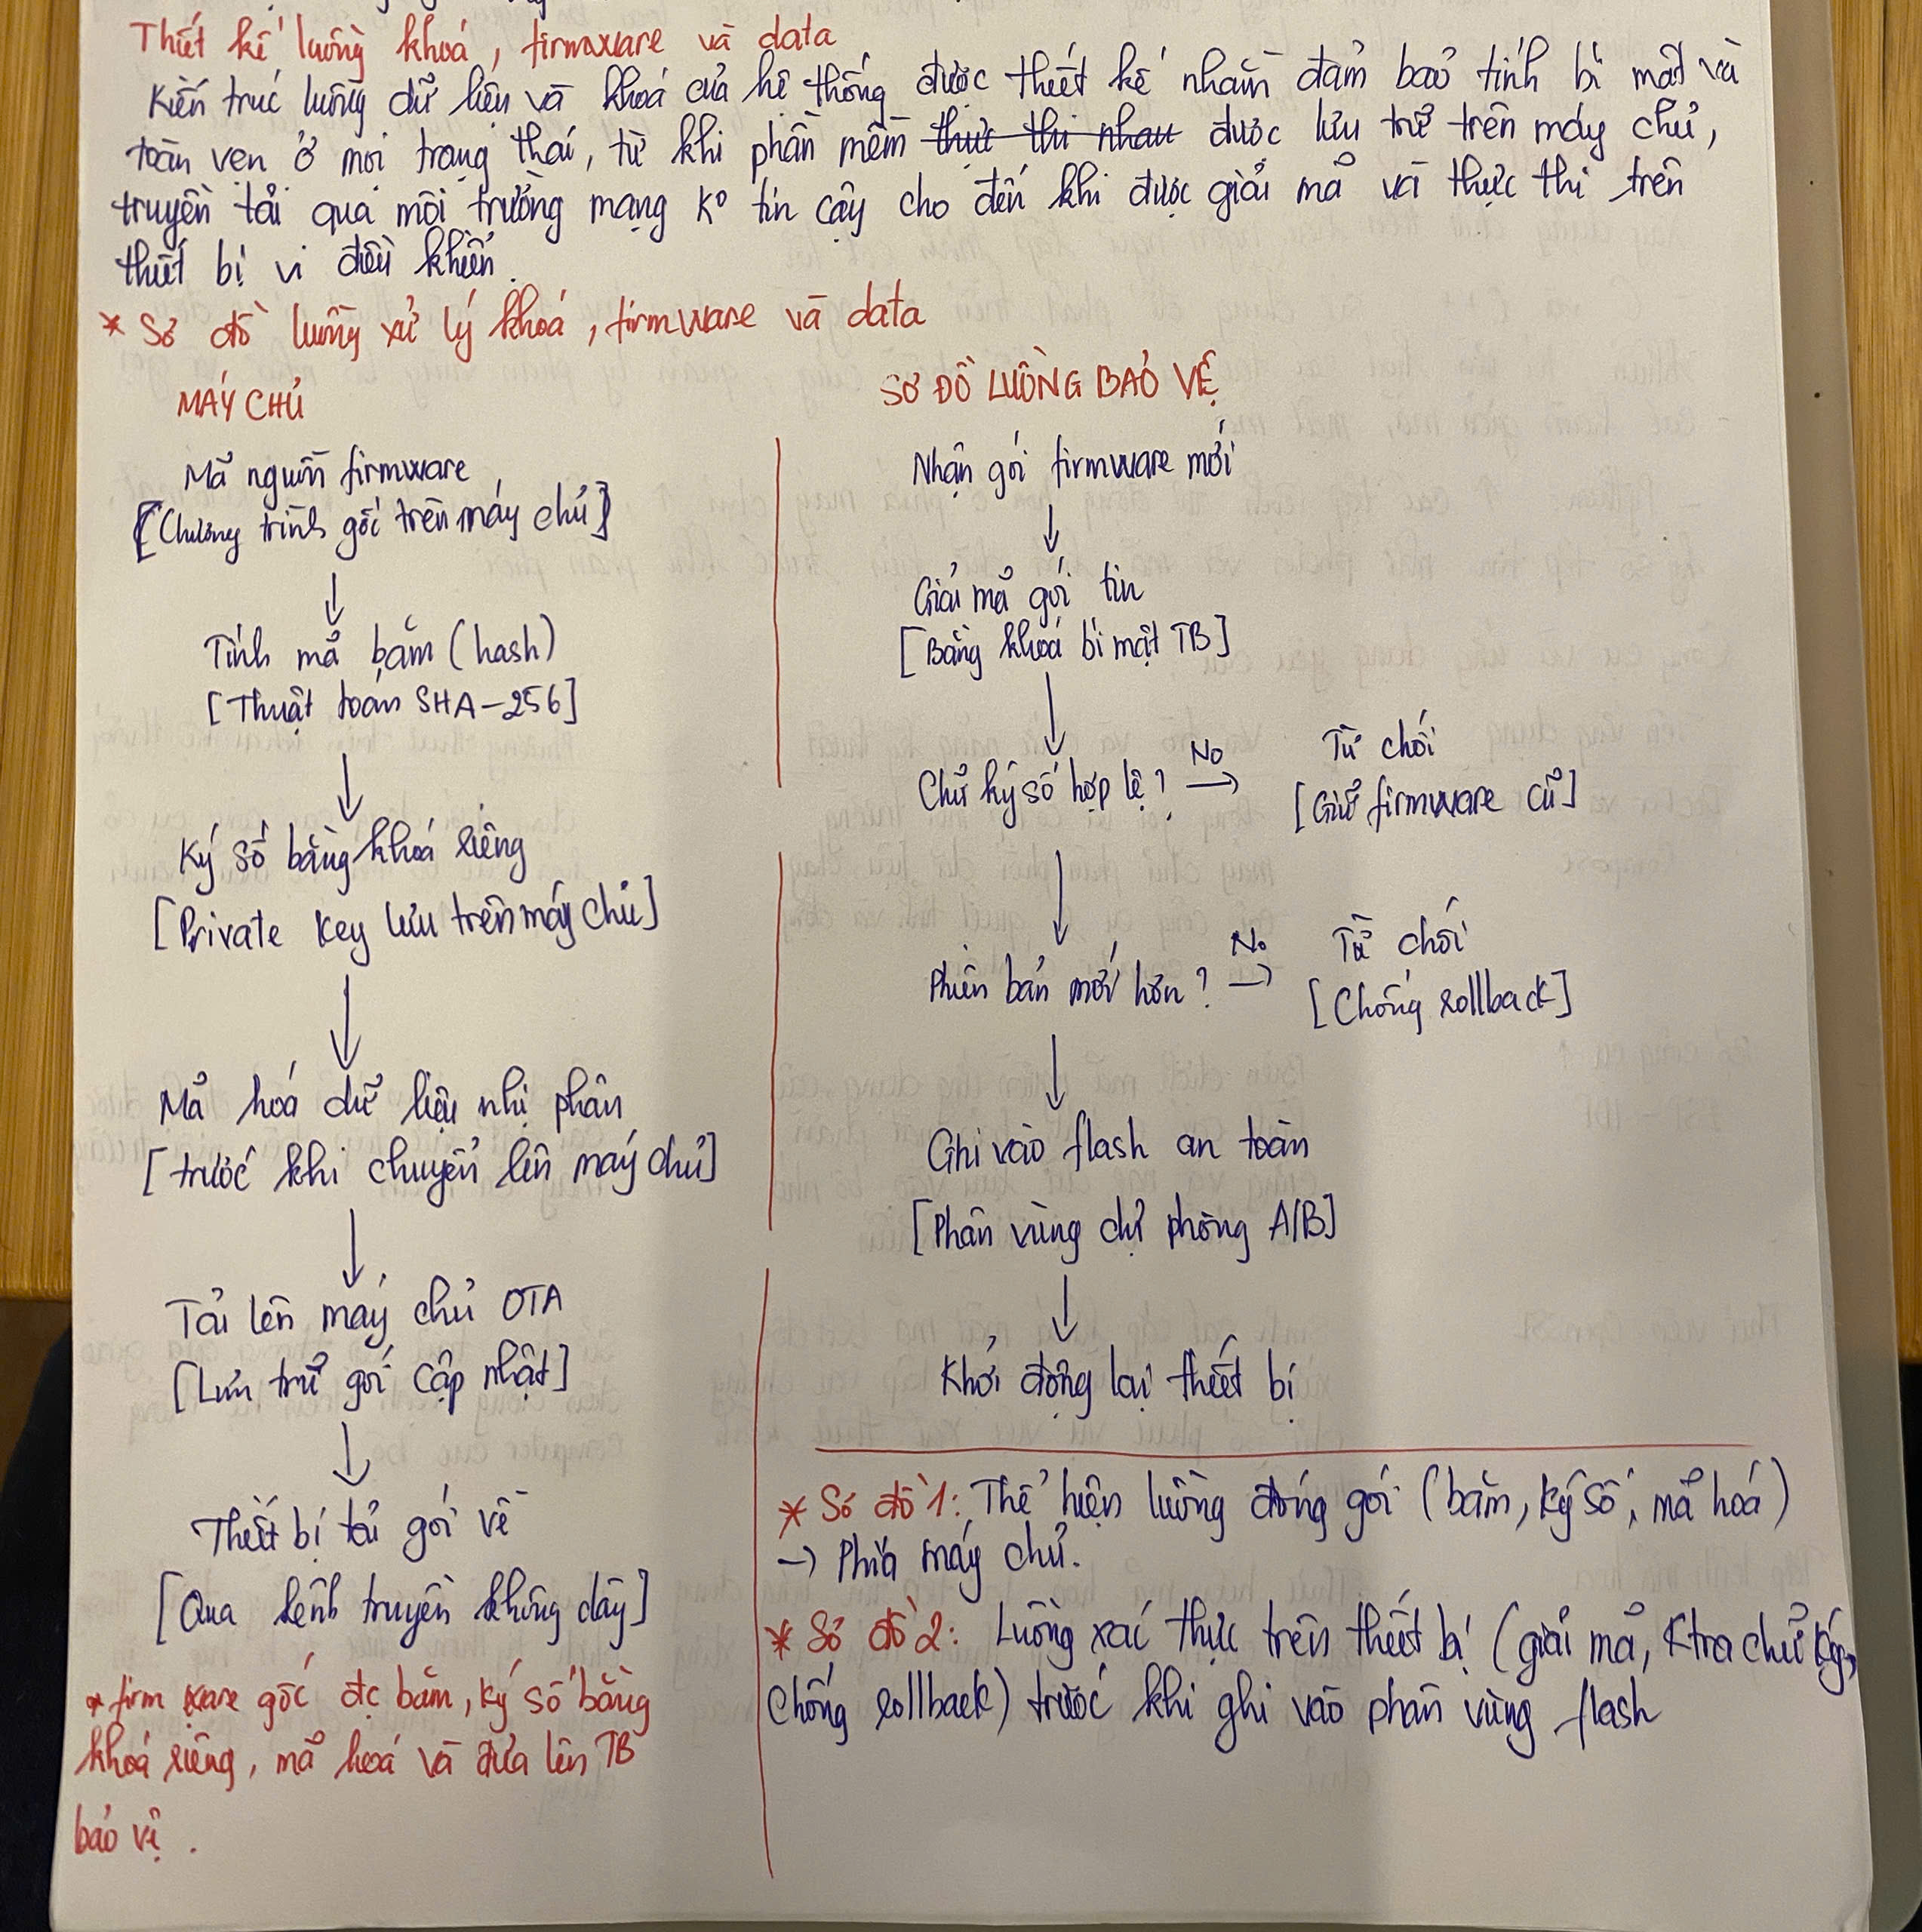 Thiết kế luồng khoá, firmware và data
Kiến trúc luồng dữ liệu và khoá của hệ thống được thiết kế nhằm đảm bảo tính bí mật và
toàn vẹn ở mọi trạng thái, từ khi phần mềm thực thi nhau được lưu trữ trên máy chủ,
truyền tải qua môi trường mạng K° tin cậy cho đến khi được giải mã và thực thi trên
thiết bị vi điều khiển.
* Sơ đồ luồng xử lý khoá, firmware và data
MÁY CHỦ
Mã nguồn firmware
[Chương trình gốc trên máy chủ]
↓
Tính mã băm (hash)
[Thuật toán SHA-256]
↓
Ký số bằng khoá riêng
[Private Key lưu trên máy chủ]
↓
Mã hóa dữ liệu nhị phân
[trước khi chuyển lên máy chủ]
↓
Tải lên máy chủ OTA
[Lưu trữ gói cập nhật]
↓
Thiết bị tải gói về
[Qua kênh truyền không dây]
* firmware gốc đc băm, ký số bằng
khoá riêng, mã hoá và đưa lên TB
bảo vệ.
SƠ ĐỒ LUỒNG BẢO VỆ
Nhận gói firmware mới
↓
Giải mã gói tin
[Bằng khoá bí mật TB]
↓
Chữ ký số hợp lệ? No → Từ chối
[Giữ firmware cũ]
↓
Phiên bản mới hơn? No → Từ chối
[Chống rollback]
↓
Ghi vào flash an toàn
[Phân vùng dự phòng A/B]
↓
Khởi động lại thiết bị
* Sơ đồ 1: Thể hiện luồng đóng gói (băm, ký số, mã hoá)
→ Phía máy chủ.
* Sơ đồ 2: Luồng xác thực trên thiết bị (giải mã, Ktra chữ ký,
Chống rollback) trước khi ghi vào phân vùng flash